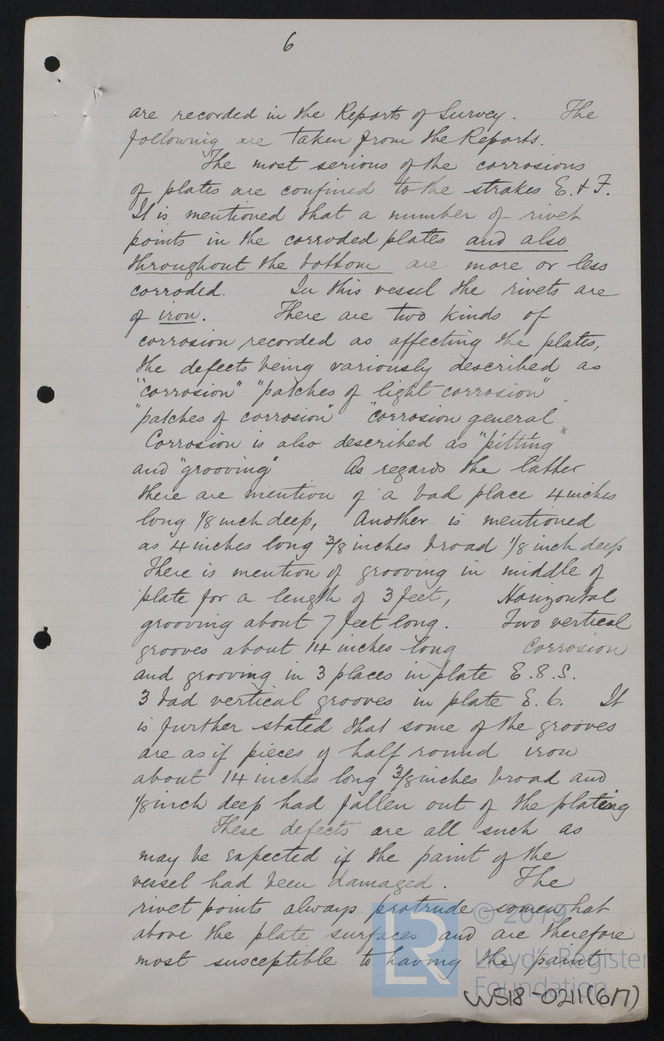 6
are recorded in the Reports of Survey. The
following are taken from the Reports.
The most serious of the corrosions
of plates are confined to the strakes E. & F.
It is mentioned that a number of rivet
points in the corroded plates and also
throughout the bottom are more or less
corroded. In this vessel the rivets are
of iron. There are two kinds of
corrosion recorded as affecting the plates,
the defects being variously described as
"corrosion" "patches of light corrosion"
"patches of corrosion" "corrosion general"
Corrosion is also described as "pitting"
and "grooving" As regards the latter
there are mention of a bad place 4 inches
long 1/8 inch deep, Another is mentioned
as 4 inches long 3/8 inches broad 1/8 inch deep
There is mention of grooving in middle of
plate for a length of 3 feet, Horizontal
grooving about 7 feet long. Two vertical
grooves about 14 inches long Corrosion
and grooving in 3 places in plate E.8.S.
3 bad vertical grooves in plate E.6. It
is further stated that some of the grooves
are as if pieces of half round iron
about 14 inches long 3/8 inches broad and
1/8 inch deep had fallen out of the plating
These defects are all such as
may be expected if the paint of the
vessel had been damaged. The
rivet points always protrude somewhat
above the plate surfaces and are therefore
most susceptible to having the paint
© 2019
Lloyd's Register
Foundation
W518-0211(6/7)